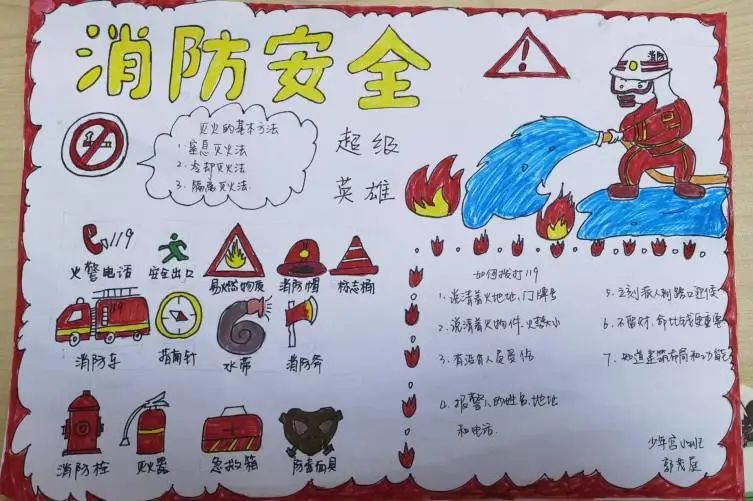 消防安全
消防
灭火的基本方法
1. 窒息灭火法
2. 冷却灭火法
3. 隔离灭火法.
超级
英雄
119
火警电话
安全出口
易燃物质
消防帽
标志桶
119
消防车
指南针
水带
消防斧
消防栓
灭火器
急救箱
防毒面具
如何拨打119
1. 说清着火地址,门牌号
2. 说清着火物件,火势大小
3. 有没有人员受伤
4. 报警人的姓名.地址
和电话.
5. 立刻派人到路口迎候
6. 不留财.命比钱更重要
7. 知道建筑布局和功能
少年宫小班